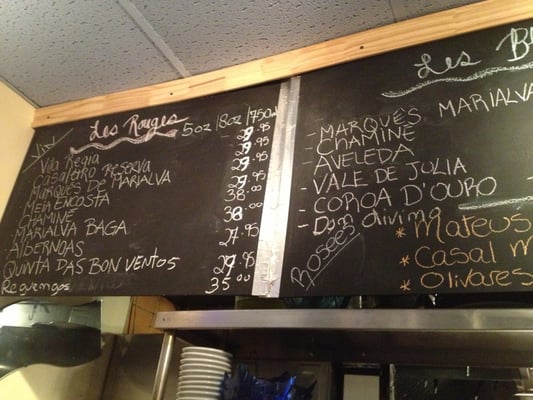 Les Rouges
5oz | 8oz | 750ml
Vila Regia 29.95
Crisaletro Reserva 29.95
Marquês de Marialva 29.95
Meia Encosta 29.95
Chamine 38.00
Marialva Baga 38.00
Albernoas 27.95
Quinta das Bon Ventos 29.95
Reguengos 35.00
Les
- Marquês Marialva
- Chamine
- Aveleda
- Vale de Julia
- Coroa D'ouro
- Dom divino
Rosees
* Mateus
* Casal M
* Olivares